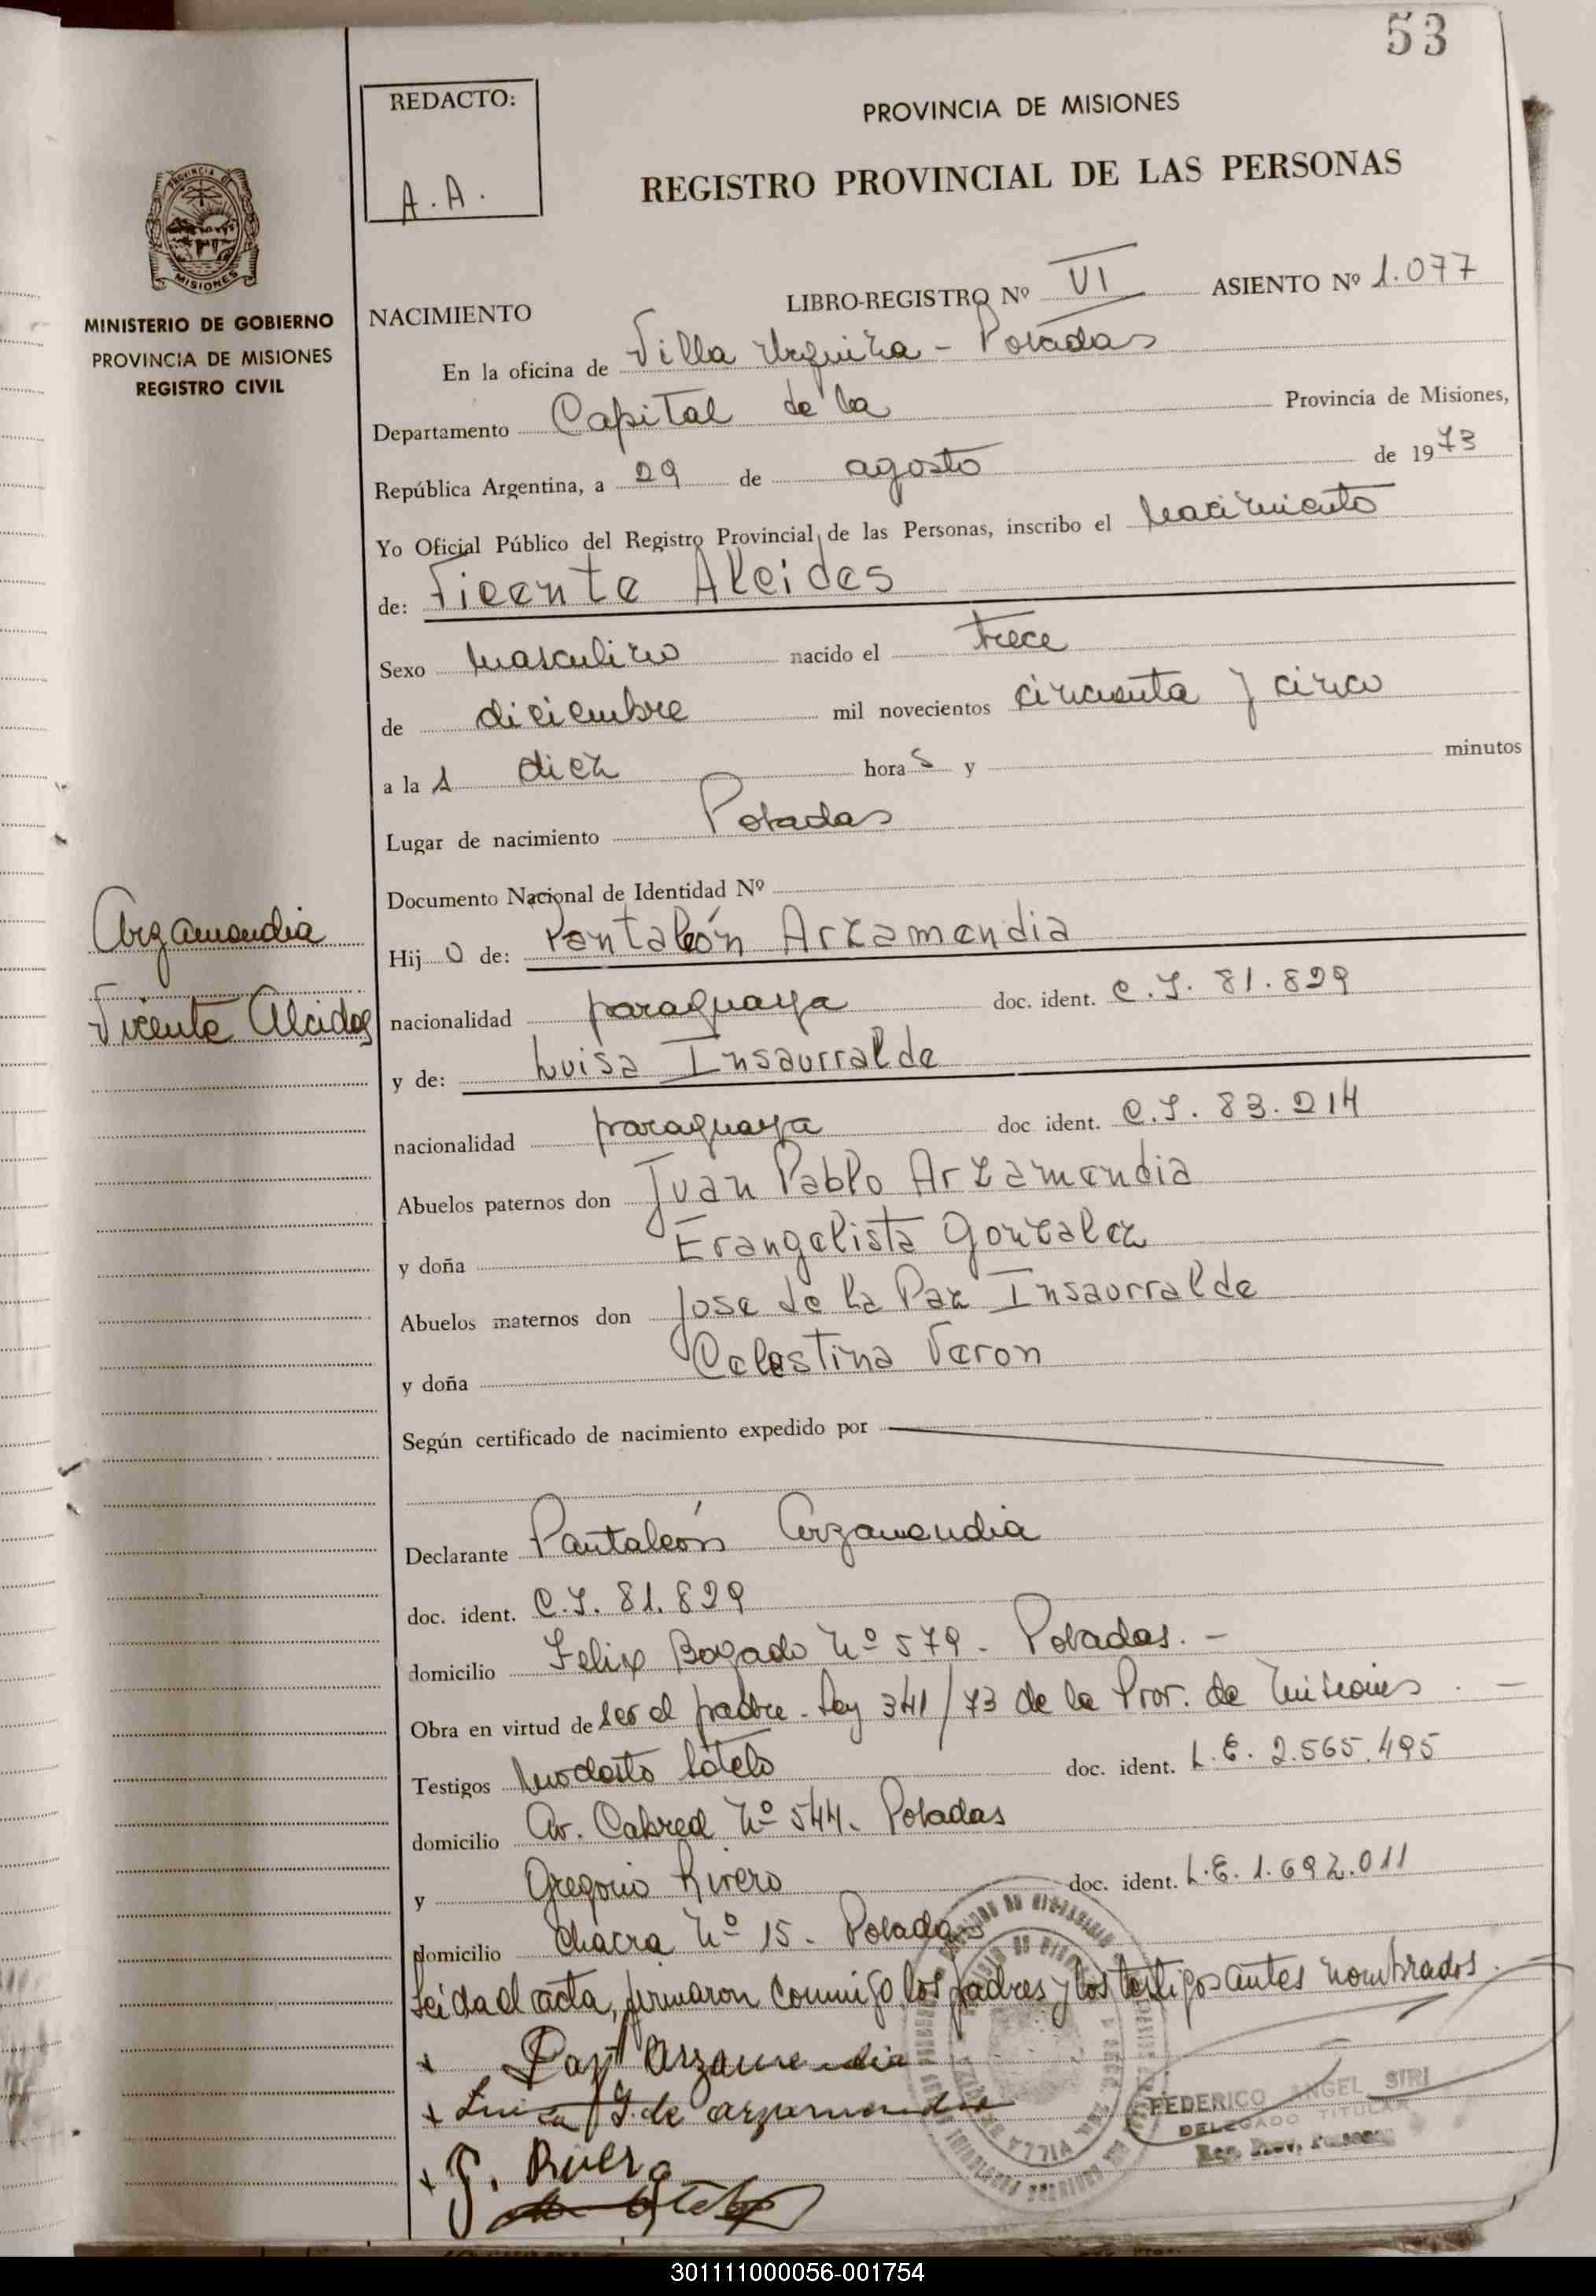 53
REDACTO:
A.A.
PROVINCIA DE MISIONES
REGISTRO PROVINCIAL DE LAS PERSONAS
PROVINCIA DE
MISIONES
MINISTERIO DE GOBIERNO
PROVINCIA DE MISIONES
REGISTRO CIVIL
NACIMIENTO LIBRO-REGISTRO Nº VI ASIENTO Nº 1.077
En la oficina de Villa Urquiza - Posadas
Departamento Capital de la Provincia de Misiones,
República Argentina, a 29 de agosto de 1973
Yo Oficial Público del Registro Provincial de las Personas, inscribo el Nacimiento
de: Vicente Alcides
Sexo masculino nacido el trece
de diciembre mil novecientos cincuenta y cinco
a las diez horas y minutos
Lugar de nacimiento Posadas
Documento Nacional de Identidad Nº
Arzamendia
Vicente Alcides
Hijo de: Pantaleón Arzamendia
nacionalidad paraguaya doc. ident. C.I. 81.829
y de: Luisa Insaurralde
nacionalidad paraguaya doc ident. C.I. 83.214
Abuelos paternos don Juan Pablo Arzamendia
y doña Evangelista Gonzalez
Abuelos maternos don Jose de la Paz Insaurralde
y doña Celestina Veron
Según certificado de nacimiento expedido por
Declarante Pantaleón Arzamendia
doc. ident. C.I. 81.829
domicilio Felix Bogado Nº 579 - Posadas. -
Obra en virtud de ser el padre - Ley 341/73 de la Prov. de Misiones. -
Testigos Modesto Sotelo doc. ident. L.E. 2.565.495
domicilio Av. Cabred Nº 544. Posadas
y Gregorio Rivero doc. ident. L.E. 1.692.011
domicilio Chacra Nº 15 - Posadas
Leida el acta, firmaron conmigo los padres y los testigos antes nombrados. -
+ Pant Arzamendia
+ Luisa I. de arzamendia
+ G. Rivero
FEDERICO ANGEL SIRI
DELEGADO TITULAR
Reg. Prov. Personas
VILLA
301111000056-001754